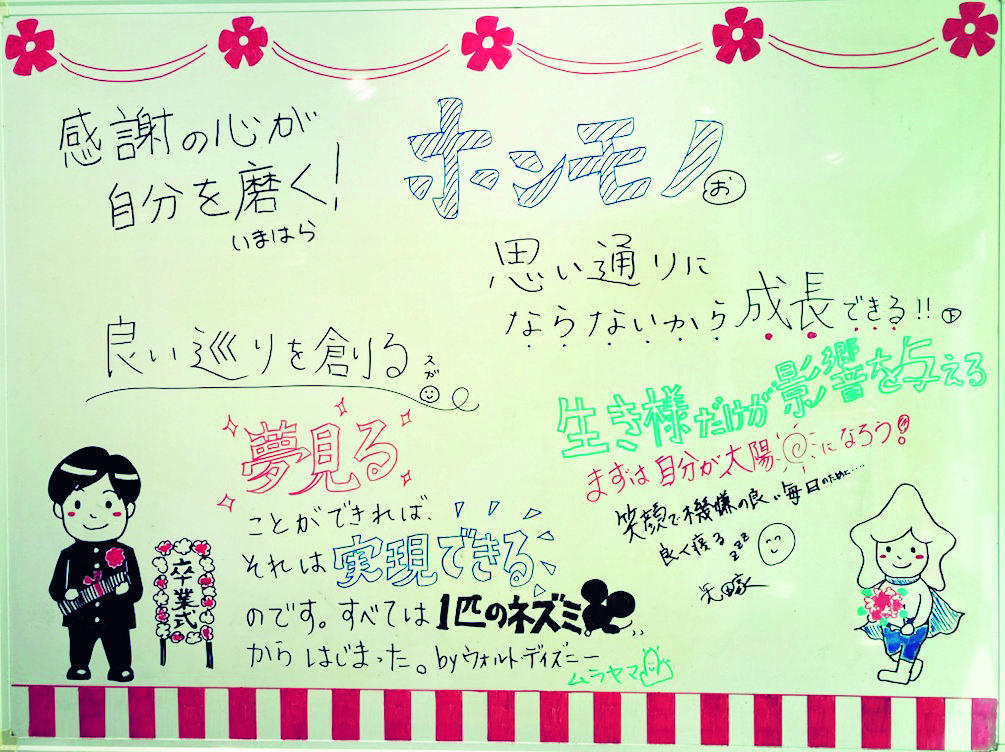 感謝の心が
自分を磨く!
いまはら
ホンモノ。
お
思い通りに
ならないから成長できる!!
下
良い巡りを創る
スガ
夢見る
ことができれば、
それは実現できる
のです。すべては1匹のネズミ
からはじまった。byウォルト・ディズニー
ムラヤマ
生き様だけが影響を与える
まずは自分が太陽になろう!
笑顔で機嫌の良い毎日のために……
良く寝るzzz
卒業式